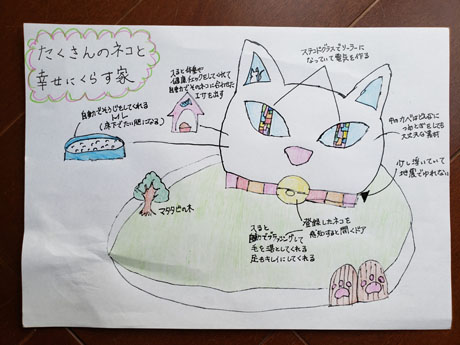 たくさんのネコと
幸せにくらす家
入ると体重や
健康チェックをしてくれて
自動でそのネコに合わせた
エサを出す
ステンドグラスでソーラーに
なっていて電気を作る
自動でそうじをしてくれる
トイレ
(床下でたい肥になる)
中のカベはどんなに
つめとぎをしても
大丈夫な素材
少し浮いていて
地震でゆれない
マタタビの木
入ると
自動でブラッシングして
毛を落としてくれる
足もキレイにしてくれる
登録したネコを
感知すると開くドア